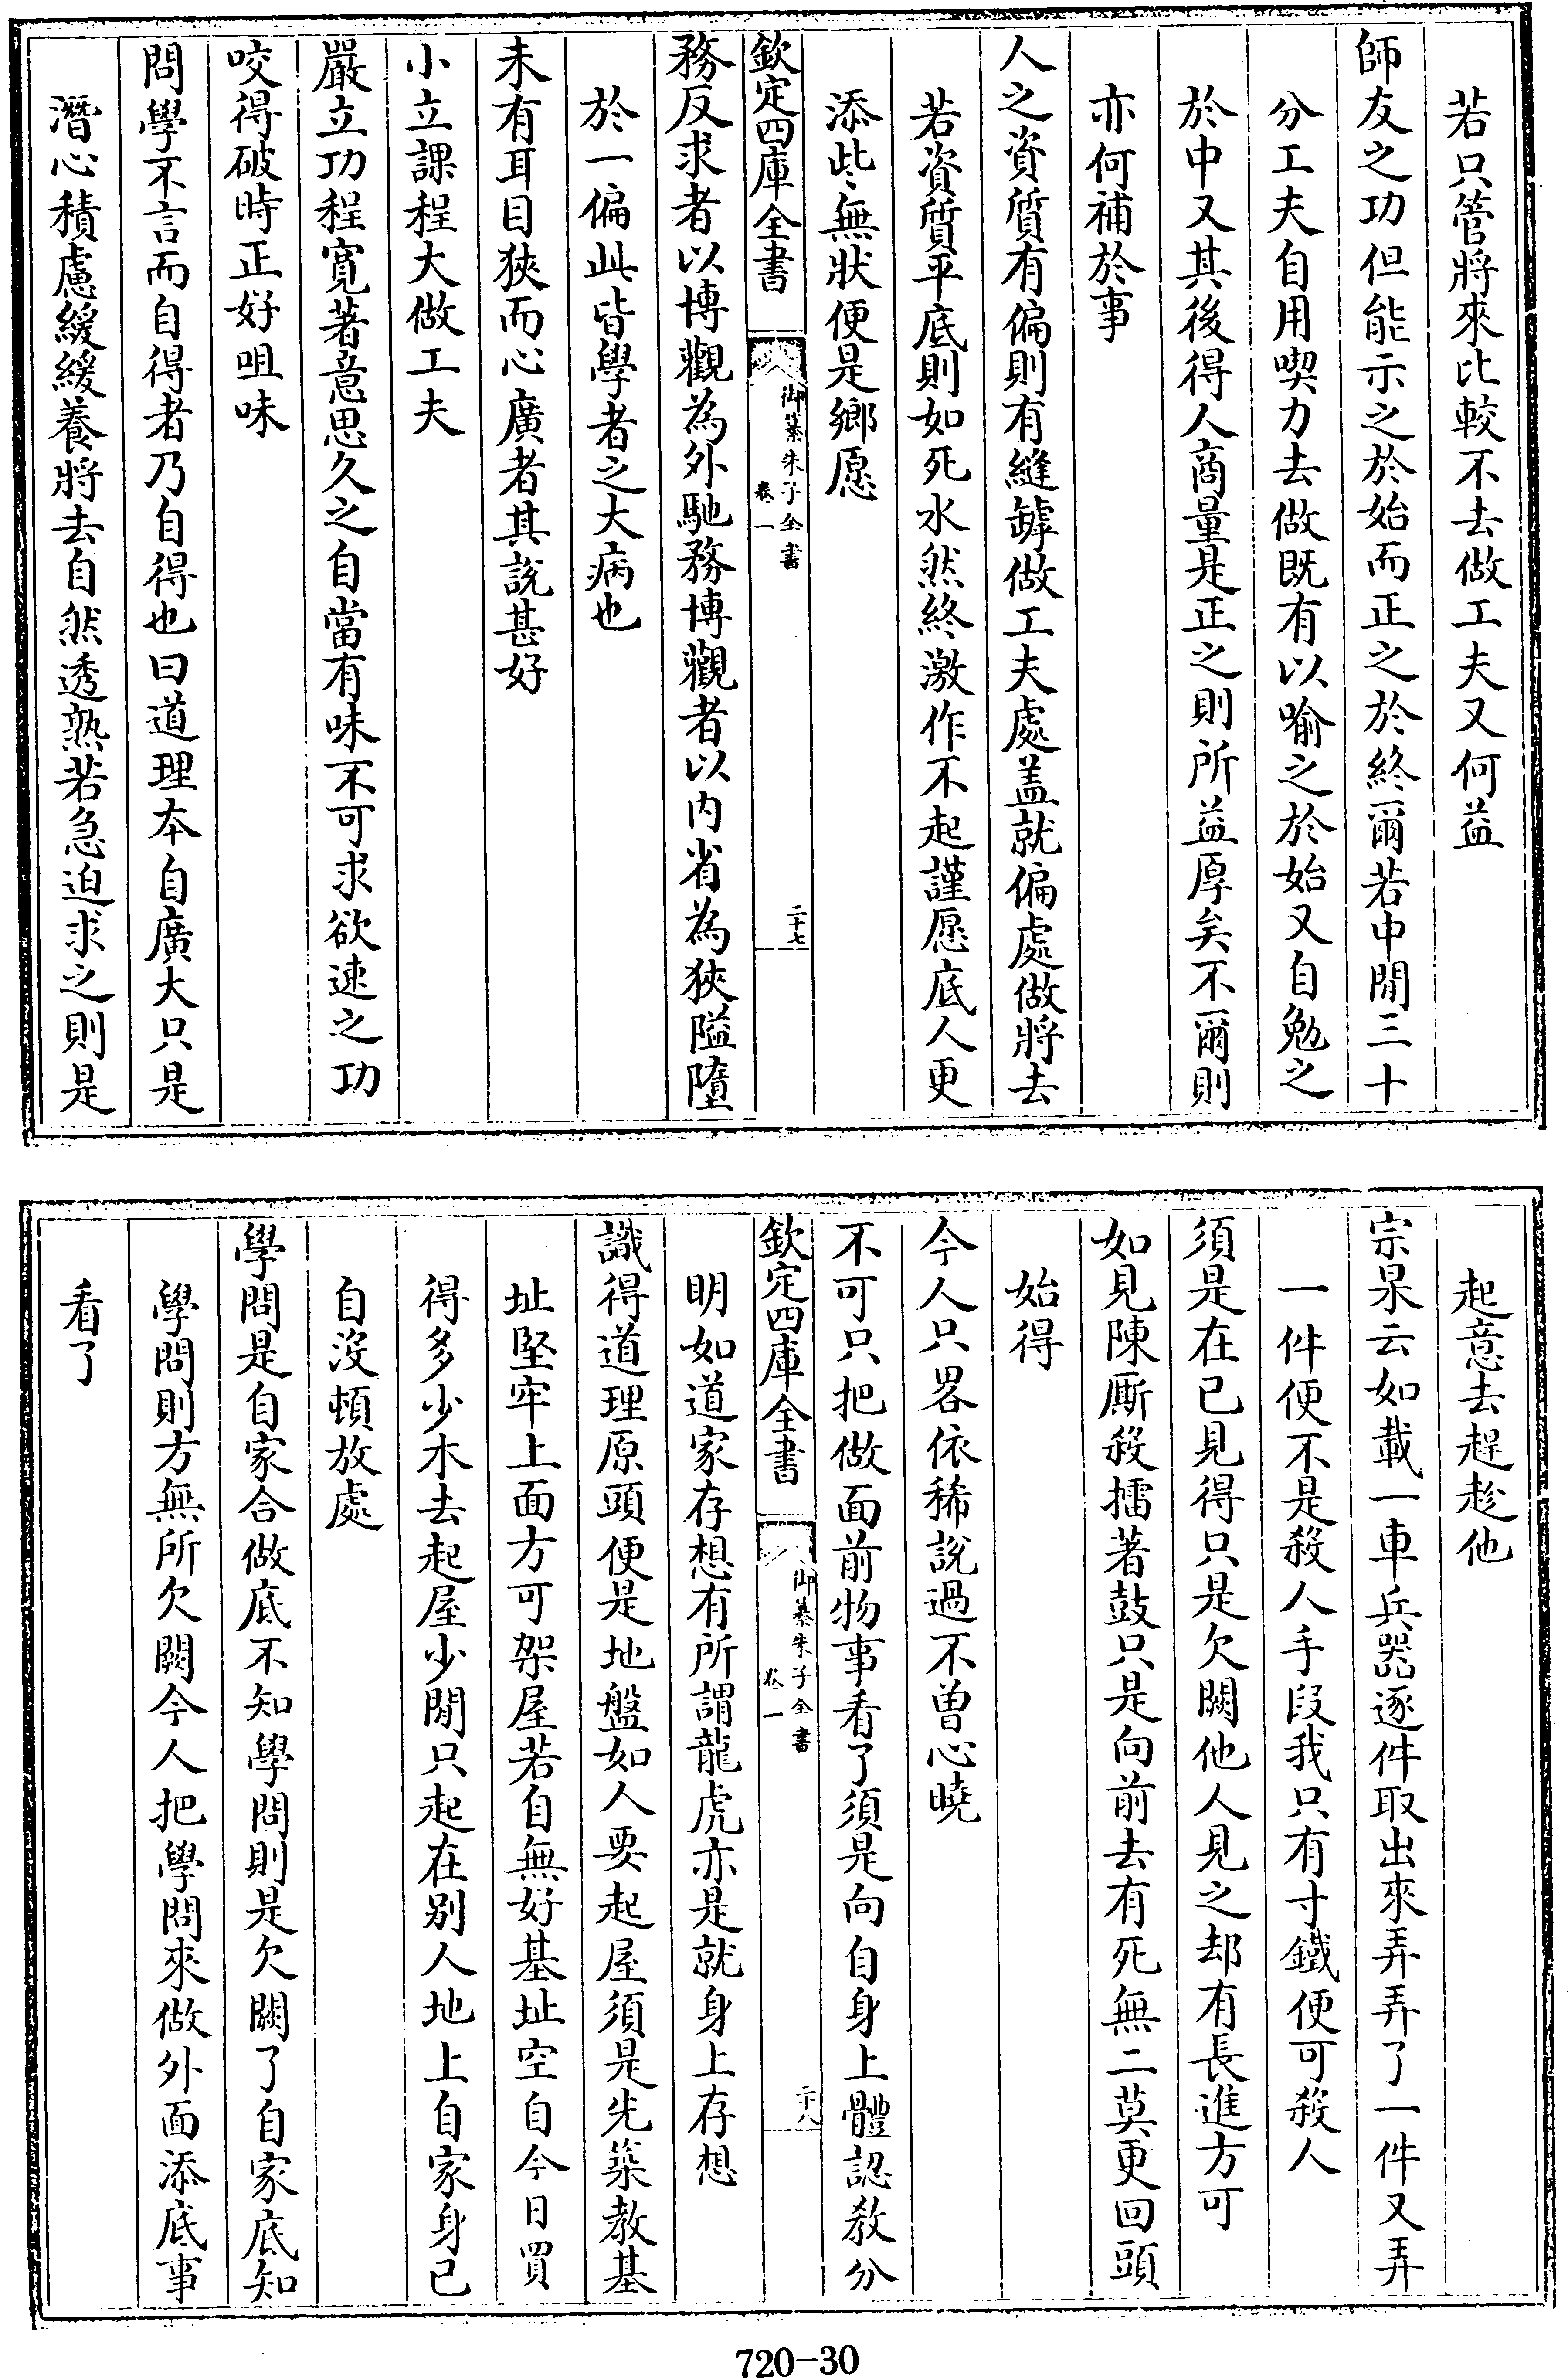 若只管將來比較不去做工夫又何益
師友之功但能示之於始而正之於終爾若中閒三十
分工夫自用喫力去做既有以喻之於始又自勉之
於中又其後得人商量是正之則所益厚矣不爾則
亦何補於事
人之資質有偏則有縫罅做工夫處盖就偏處做將去
若資質平底則如死水然終激作不起謹愿底人更
添此無狀便是鄉愿
欽定四庫全書
御纂朱子全書
卷一
二十七
務反求者以博觀為外馳務博觀者以内省為狹隘墮
於一偏此皆學者之大病也
未有耳目狹而心廣者其說甚好
小立課程大做工夫
嚴立功程寛著意思久之自當有味不可求欲速之功
咬得破時正好咀味
問學不言而自得者乃自得也曰道理本自廣大只是
潛心積慮緩緩養將去自然透熟若急迫求之則是
起意去趕趁他
宗杲云如載一車兵器逐件取出來弄弄了一件又弄
一件便不是殺人手段我只有寸鐵便可殺人
須是在已見得只是欠闕他人見之却有長進方可
如見陳厮殺擂著鼓只是向前去有死無二莫更回頭
始得
今人只畧依稀說過不曾心曉
不可只把做面前物事看了須是向自身上體認教分
欽定四庫全書
御纂朱子全書
卷一
二十八
明如道家存想有所謂龍虎亦是就身上存想
識得道理原頭便是地盤如人要起屋須是先築教基
址堅牢上面方可架屋若自無好基址空自今日買
得多少木去起屋少閒只起在别人地上自家身已
自沒頓放處
學問是自家合做底不知學問則是欠闕了自家底知
學問則方無所欠闕今人把學問來做外面添底事
看了
720-30